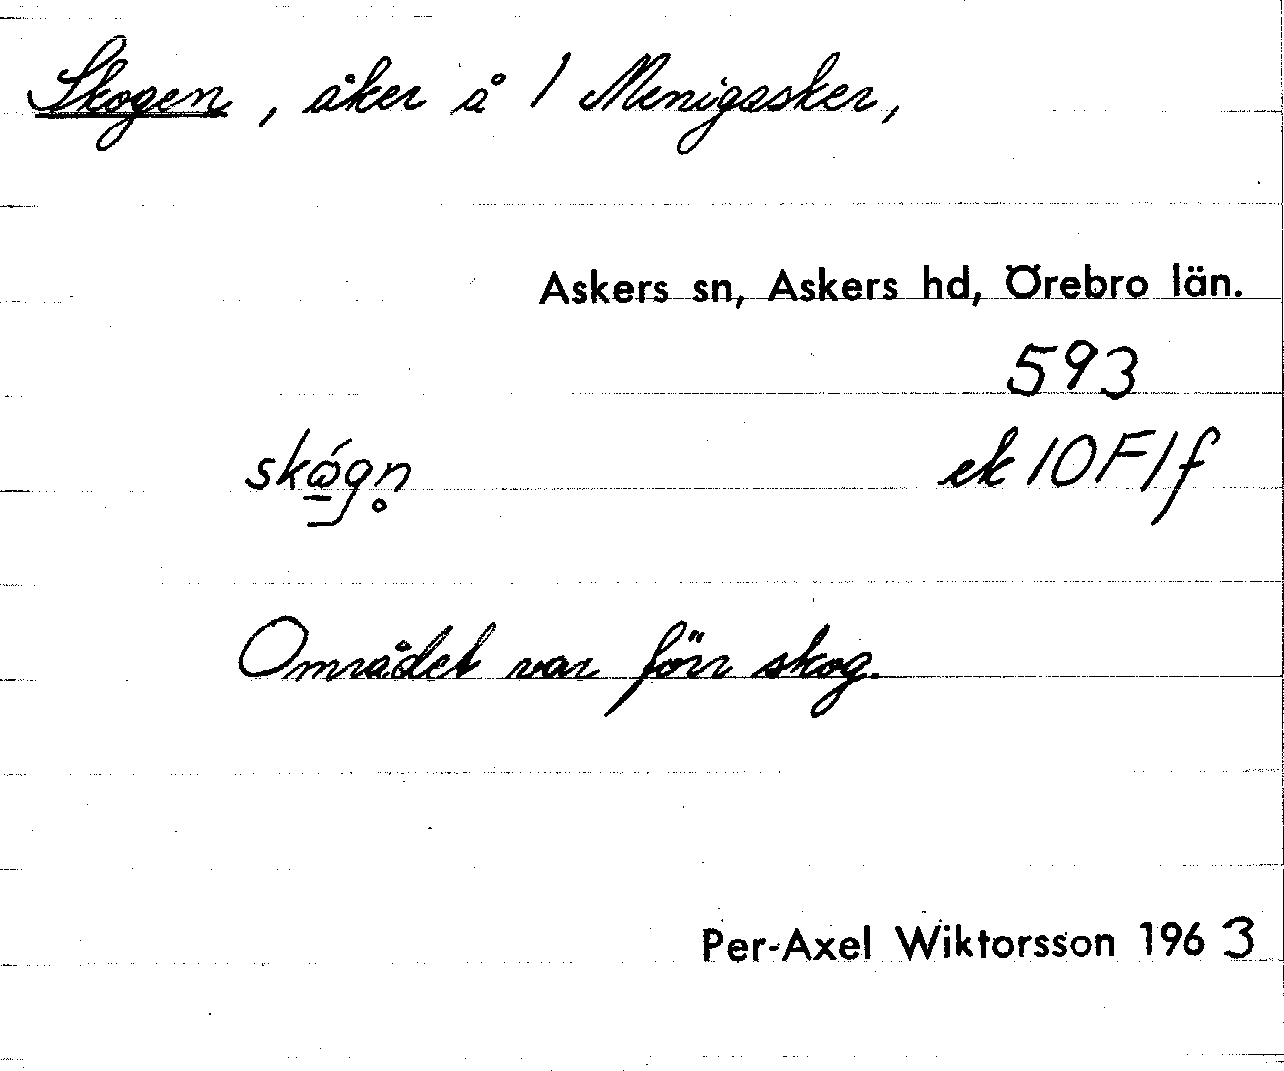 Skogen, åker å 1 Menigasker,
Askers sn, Askers hd, Örebro län.
593
ek 10F1f
Området var förr skog.
Per-Axel Wiktorsson 1963